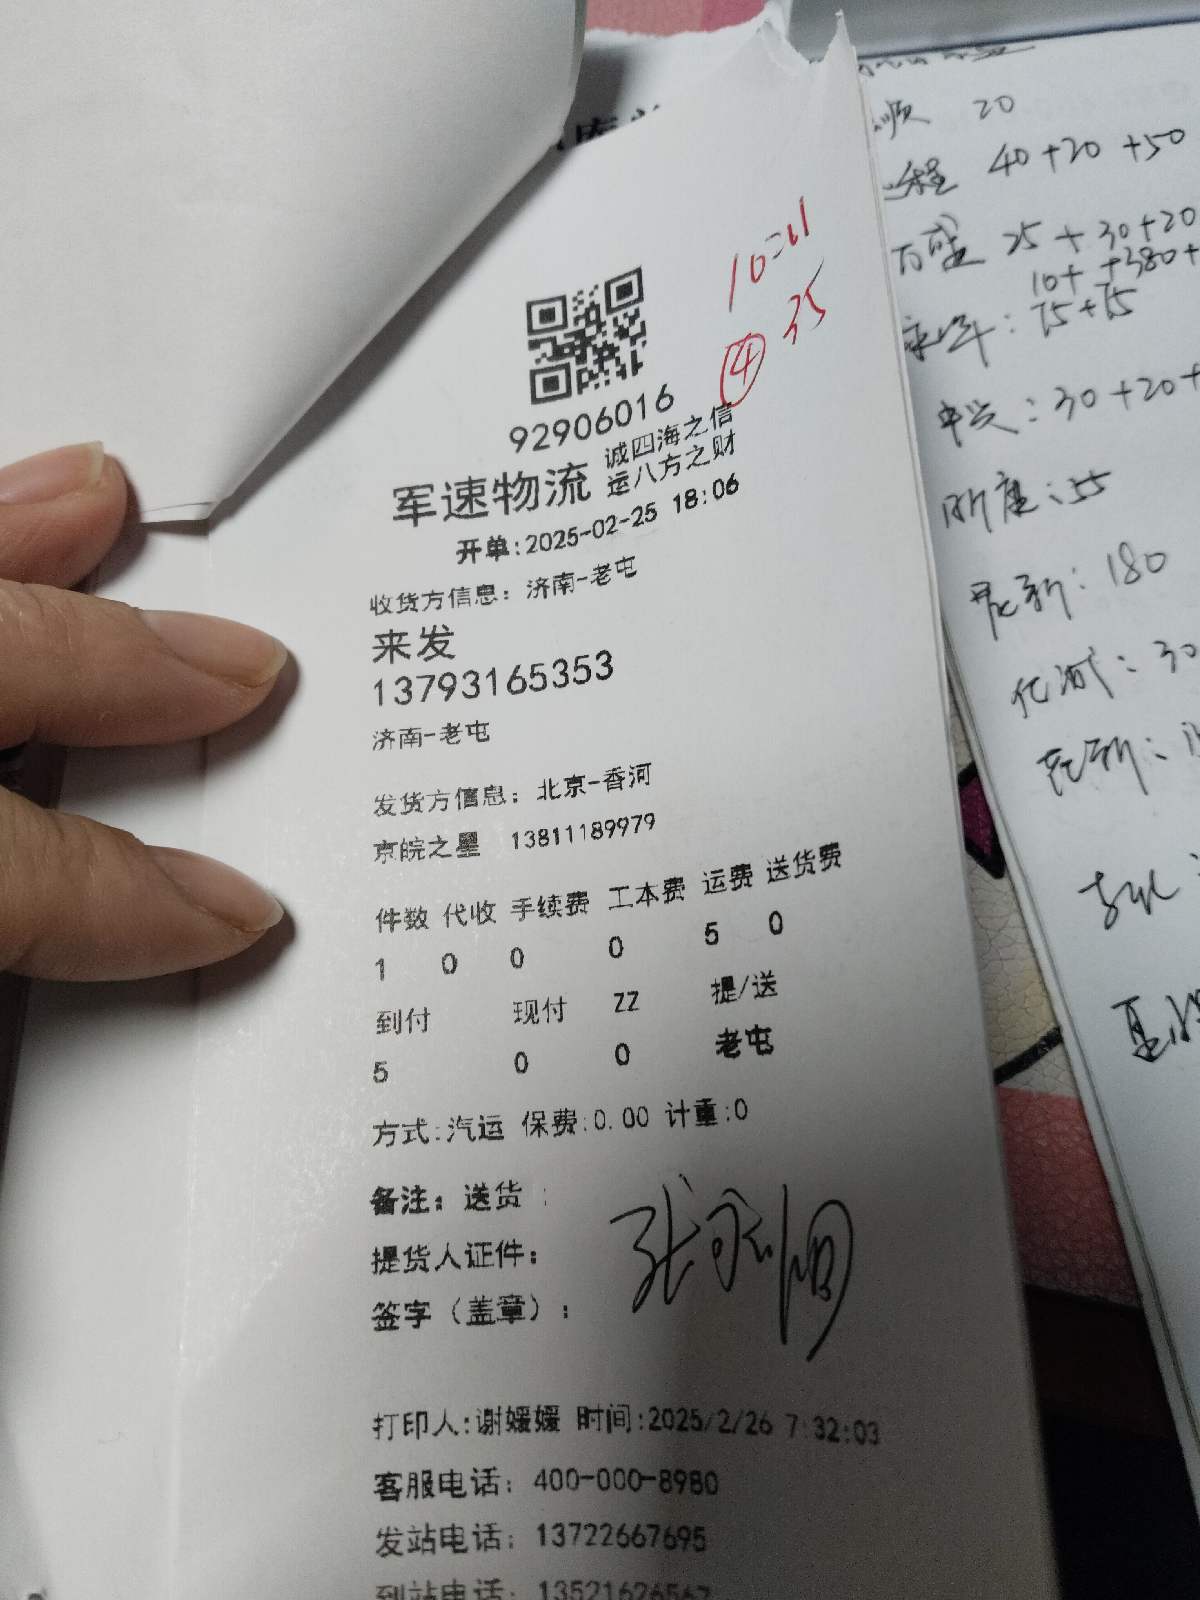 10=11
35
④
92906016
军速物流 诚四海之信
运八方之财
开单:2025-02-25 18:06
收货方信息：济南-老屯
来发
13793165353
济南-老屯
发货方信息：北京-香河
京皖之星 13811189979
件数 代收 手续费 工本费 运费 送货费
1 0 0 0 5 0
到付 现付 ZZ 提/送
5 0 0 老屯
方式:汽运 保费:0.00 计重:0
备注：送货：
提货人证件：
签字（盖章）：
打印人:谢媛媛 时间:2025/2/26 7:32:03
客服电话：400-000-8980
发站电话：13722667695
到站电话：13521626567
顺 20
程 40+20+50
百盛 25+30+20
10+ +380+
永年：75+75
中兴：30+20+
55
180
30